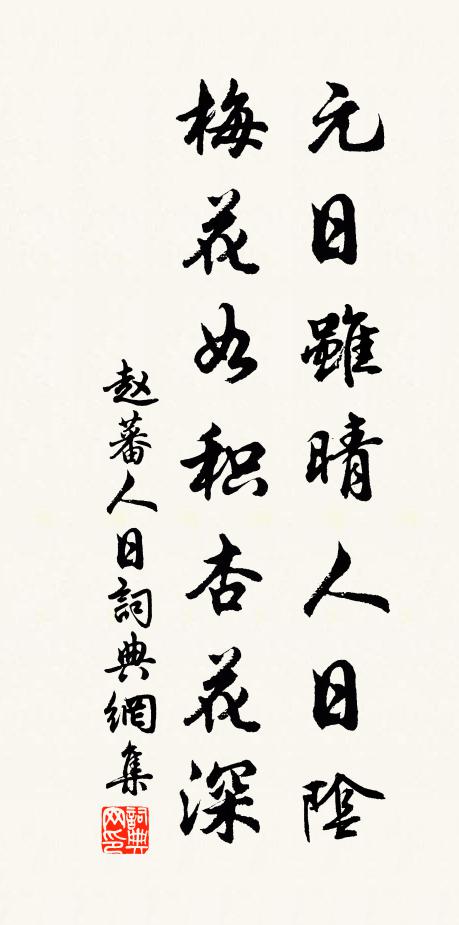 元日雖晴人日陰
梅花如积杏花深
赵蕃人日詞典網集
詞典网印